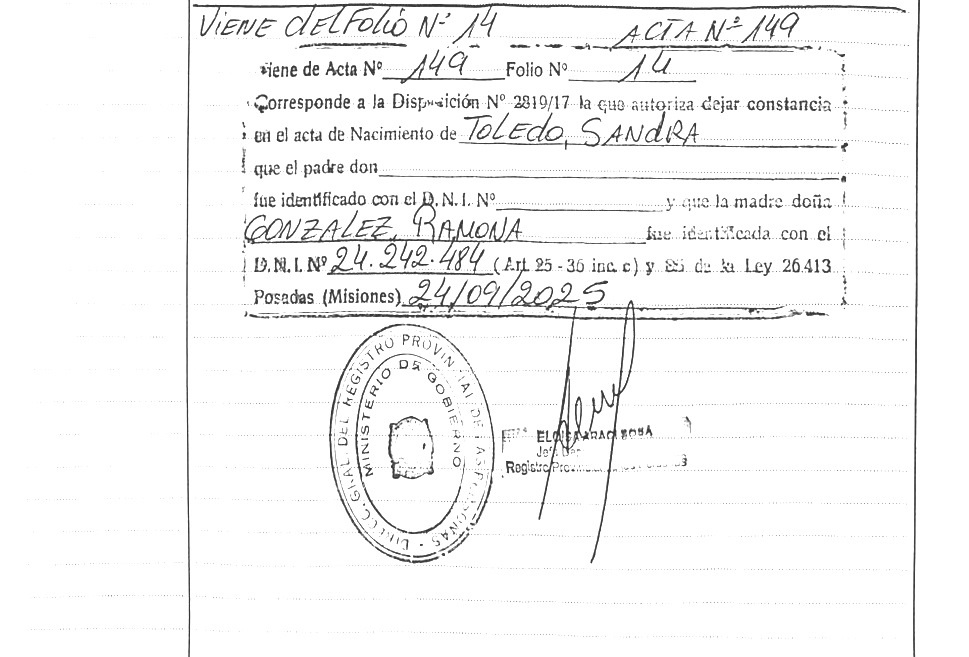 VIENE del Folio Nº 14 ACTA Nº 149
Viene de Acta Nº 149 Folio Nº 14
Corresponde a la Disposición Nº 2819/17 la que autoriza dejar constancia
en el acta de Nacimiento de TOLEDO, SANDRA
que el padre don
fue identificado con el D.N.I. Nº y que la madre doña
GONZALEZ, RAMONA fue identificada con el
D.N.I. Nº 24.242.484 (Art. 25 - 36 inc. c) y 85 de la Ley 26.413
Posadas (Misiones) 24/09/2025
DIRECC. GRAL. DEL REGISTRO PROVINCIAL DE LAS PERSONAS
MINISTERIO DE GOBIERNO
SOSA
Registro